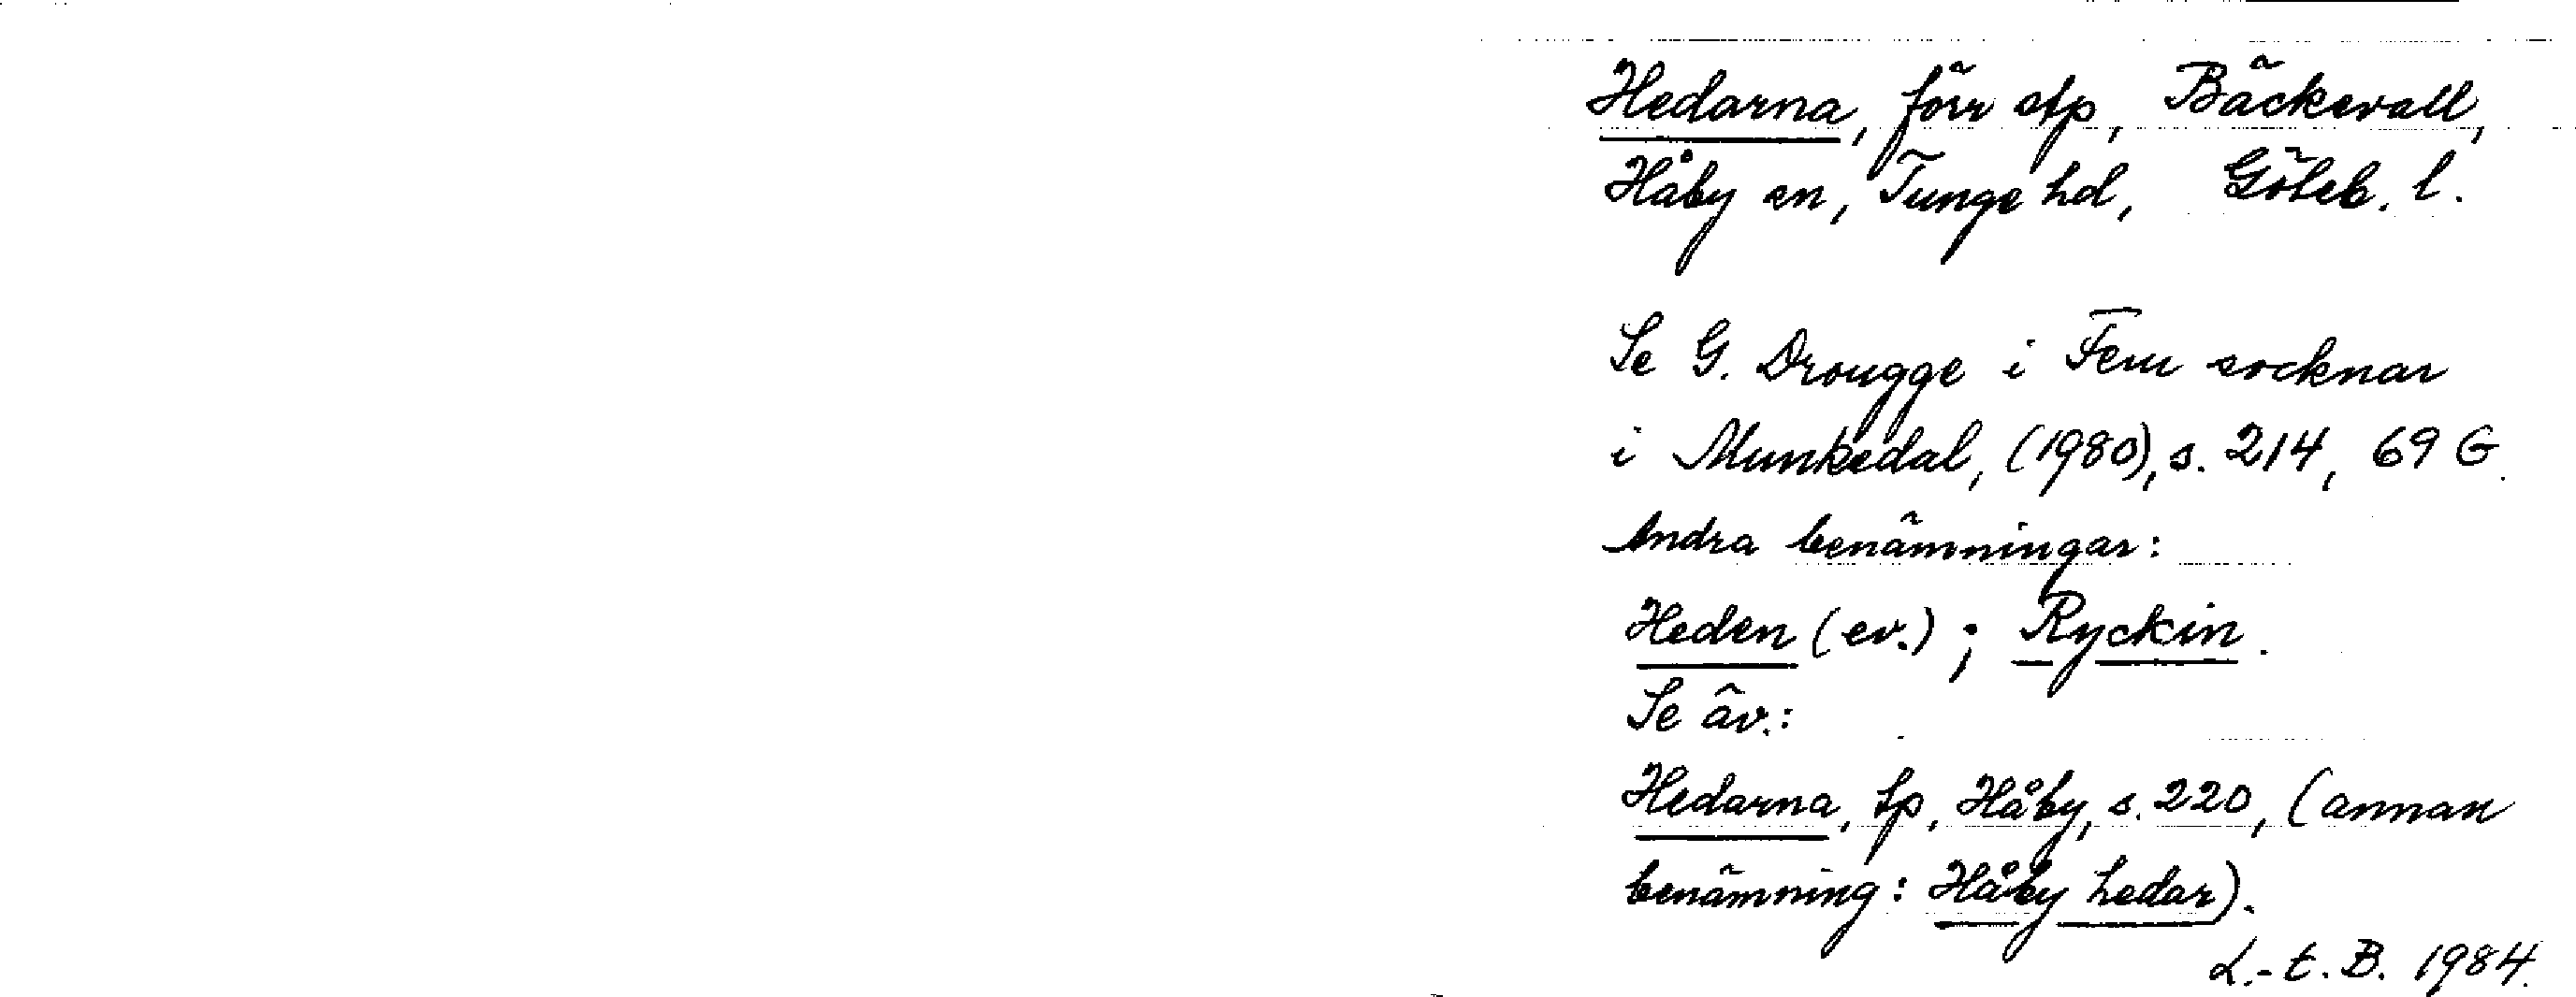 Hedarna, förr stp, Bäckevall,
Håby sn, Tunge hd, Göteb. l.
Se G. Drougge i Fem socknar
i Munkedal, (1980), s. 214, 69 G.
Andra benämningar:
Heden (ev.); Ryckin.
Se äv.:
Hedarna, tp, Håby, s. 220, (annan
benämning: Håby hedar).
L.-E. B. 1984.